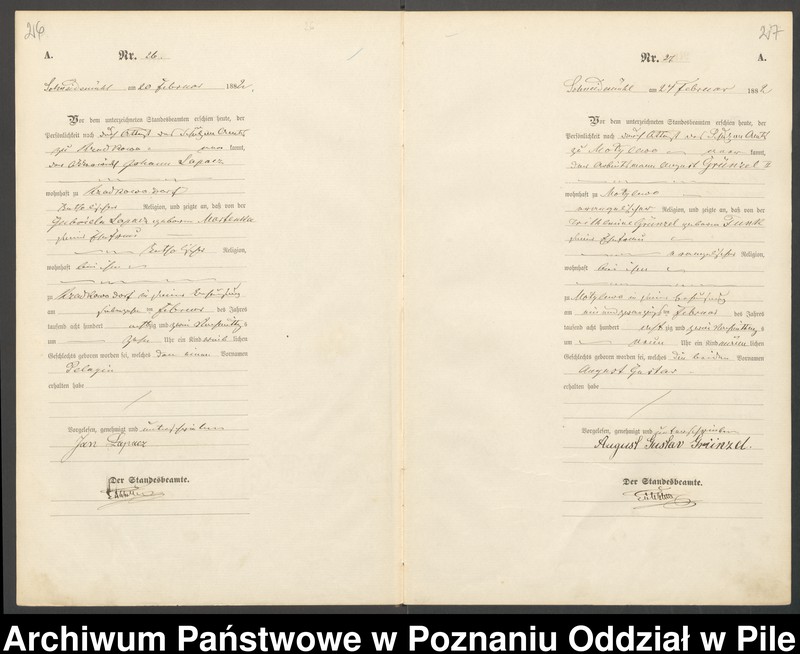 26
A.
Nr. 26
Schneidemühl am 20 Februar 1882.
Vor dem unterzeichneten Standesbeamten erschien heute, der
Persönlichkeit nach durch Attest des Schulzen Amts
zu Kradkowo kannt,
Johann Lapacz
wohnhaft zu Kradkowo Dorf
katholischer Religion, und zeigte an, daß von der
Gabriela Lapacz geborenen
seiner Ehefrau
katholischer Religion,
wohnhaft bei ihm
zu Kradkowo Dorf in seiner Behausung
am Februar des Jahres
tausend acht hundert achtzig und zwei Vormittags
um Uhr ein Kind weiblichen
Geschlechts geboren worden sei, welches den einen Vornamen
Pelagia
erhalten habe
Vorgelesen, genehmigt und unterschrieben
Jan Lapacz
Der Standesbeamte.
27
Nr. 27
A.
Schneidemühl am 24 Februar 1882
Vor dem unterzeichneten Standesbeamten erschien heute, der
Persönlichkeit nach durch Attest des Schulzen Amts
zu Motylewo kannt,
August Grünzel II
wohnhaft zu Motylewo
evangelischer Religion, und zeigte an, daß von der
Wilhelmine Grünzel geborenen
seiner Ehefrau
evangelischer Religion,
wohnhaft bei ihm
zu Motylewo in seiner Behausung
am ein und zwanzigsten Februar des Jahres
tausend acht hundert achtzig und zwei Nachmittags
um neun Uhr ein Kind männlichen
Geschlechts geboren worden sei, welches die beiden Vornamen
August Gustav
erhalten habe
Vorgelesen, genehmigt und unterschrieben
August Gustav Grünzel.
Der Standesbeamte.
Archiwum Państwowe w Poznaniu Oddział w Pile